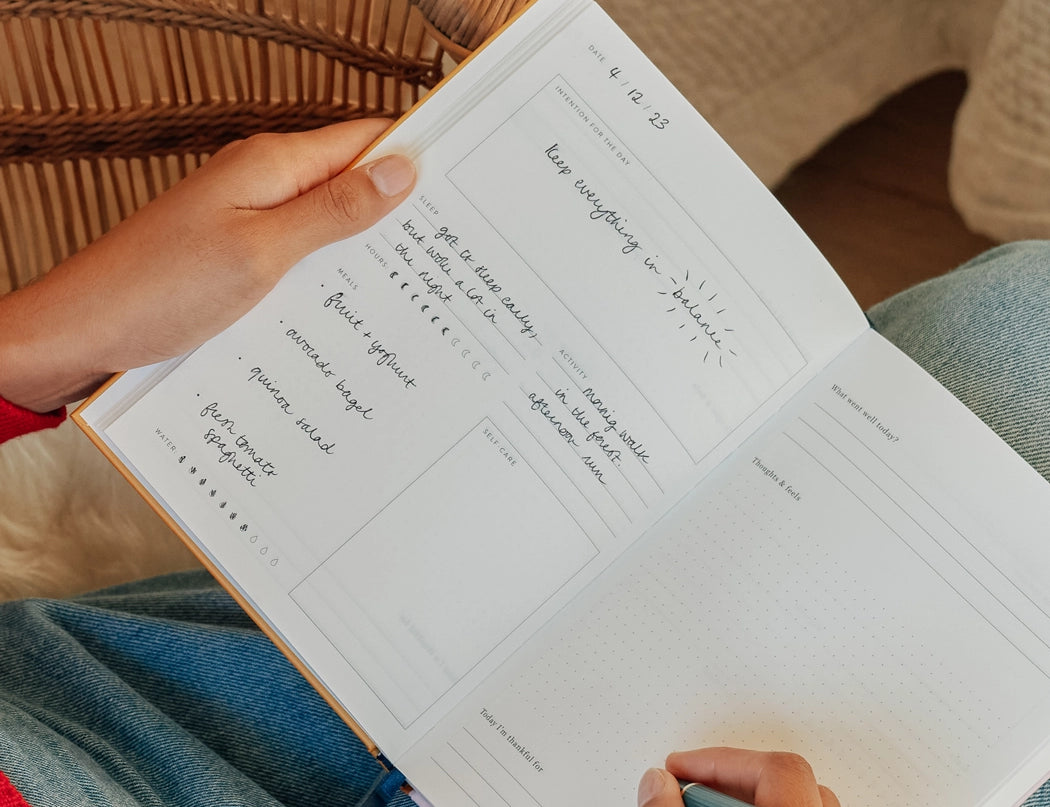 DATE 4 / 12 / 23
INTENTION FOR THE DAY
Keep everything in balance
SLEEP
got to sleep early,
but woke a lot in
the night
HOURS:
ACTIVITY
walk
in the forest.
afternoon run
MEALS
• fruit + yoghurt
• avocado bagel
• quinoa salad
• fresh tomato
spaghetti
WATER:
SELF CARE
What went well today?
Thoughts & feels
Today I'm thankful for